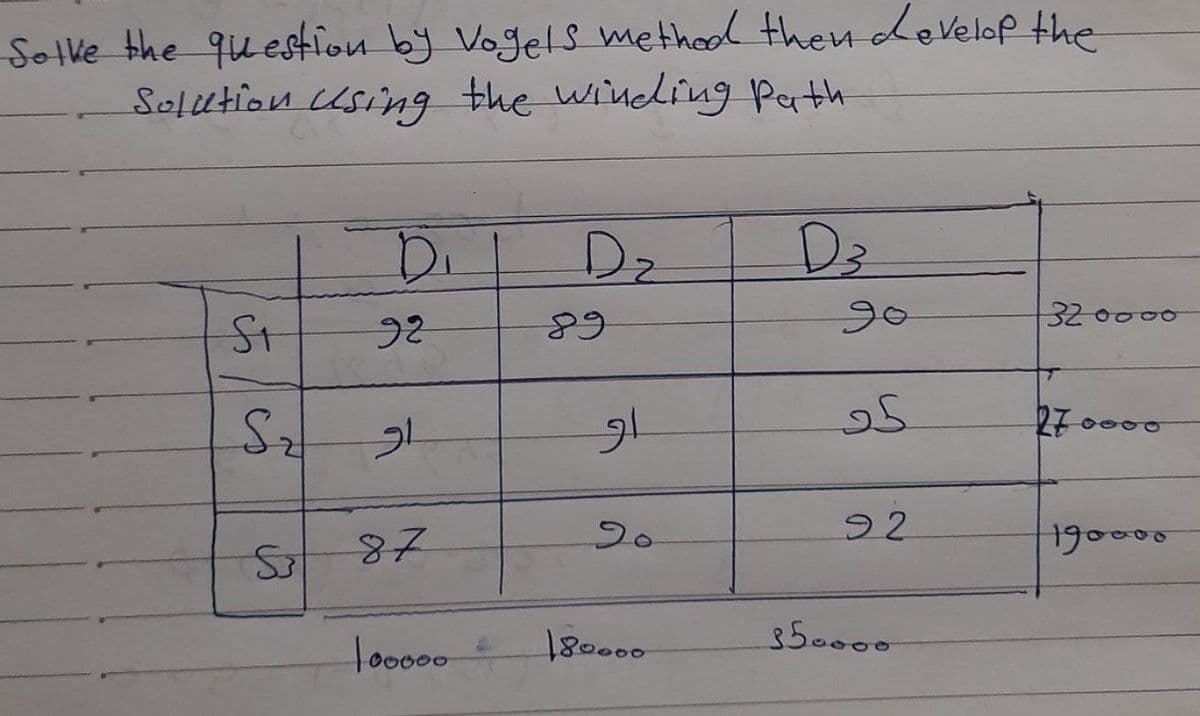 Solve the question by Vogels method then develop the
Solution using the winding Path
D1 D2 D3
S1 92 89 90 320000
S2 91 91 95 270000
S3 87 90 92 190000
100000 180000 350000